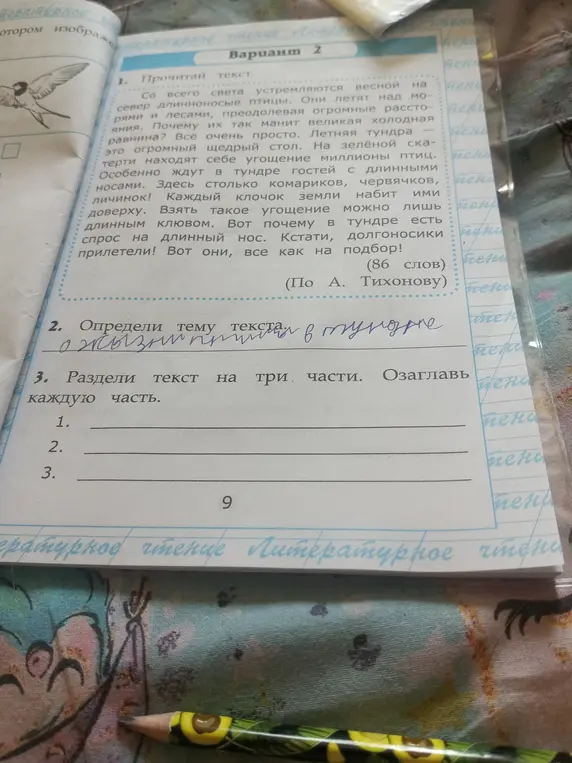 отором изображе
Литературное чтение Литературное чтение
Вариант 2
1. Прочитай текст.
Со всего света устремляются весной на
север длинноносые птицы. Они летят над мо-
рями и лесами, преодолевая огромные рассто-
яния. Почему их так манит великая холодная
равнина? Все очень просто. Летняя тундра —
это огромный щедрый стол. На зелёной ска-
терти находят себе угощение миллионы птиц.
Особенно ждут в тундре гостей с длинными
носами. Здесь столько комариков, червячков,
личинок! Каждый клочок земли набит ими
доверху. Взять такое угощение можно лишь
длинным клювом. Вот почему в тундре есть
спрос на длинный нос. Кстати, долгоносики
прилетели! Вот они, все как на подбор!
(86 слов)
(По А. Тихонову)
2. Определи тему текста.
о жызни птицы в тундре
3. Раздели текст на три части. Озаглавь
каждую часть.
1.
2.
3.
9
ературное чтение Литературное чтени